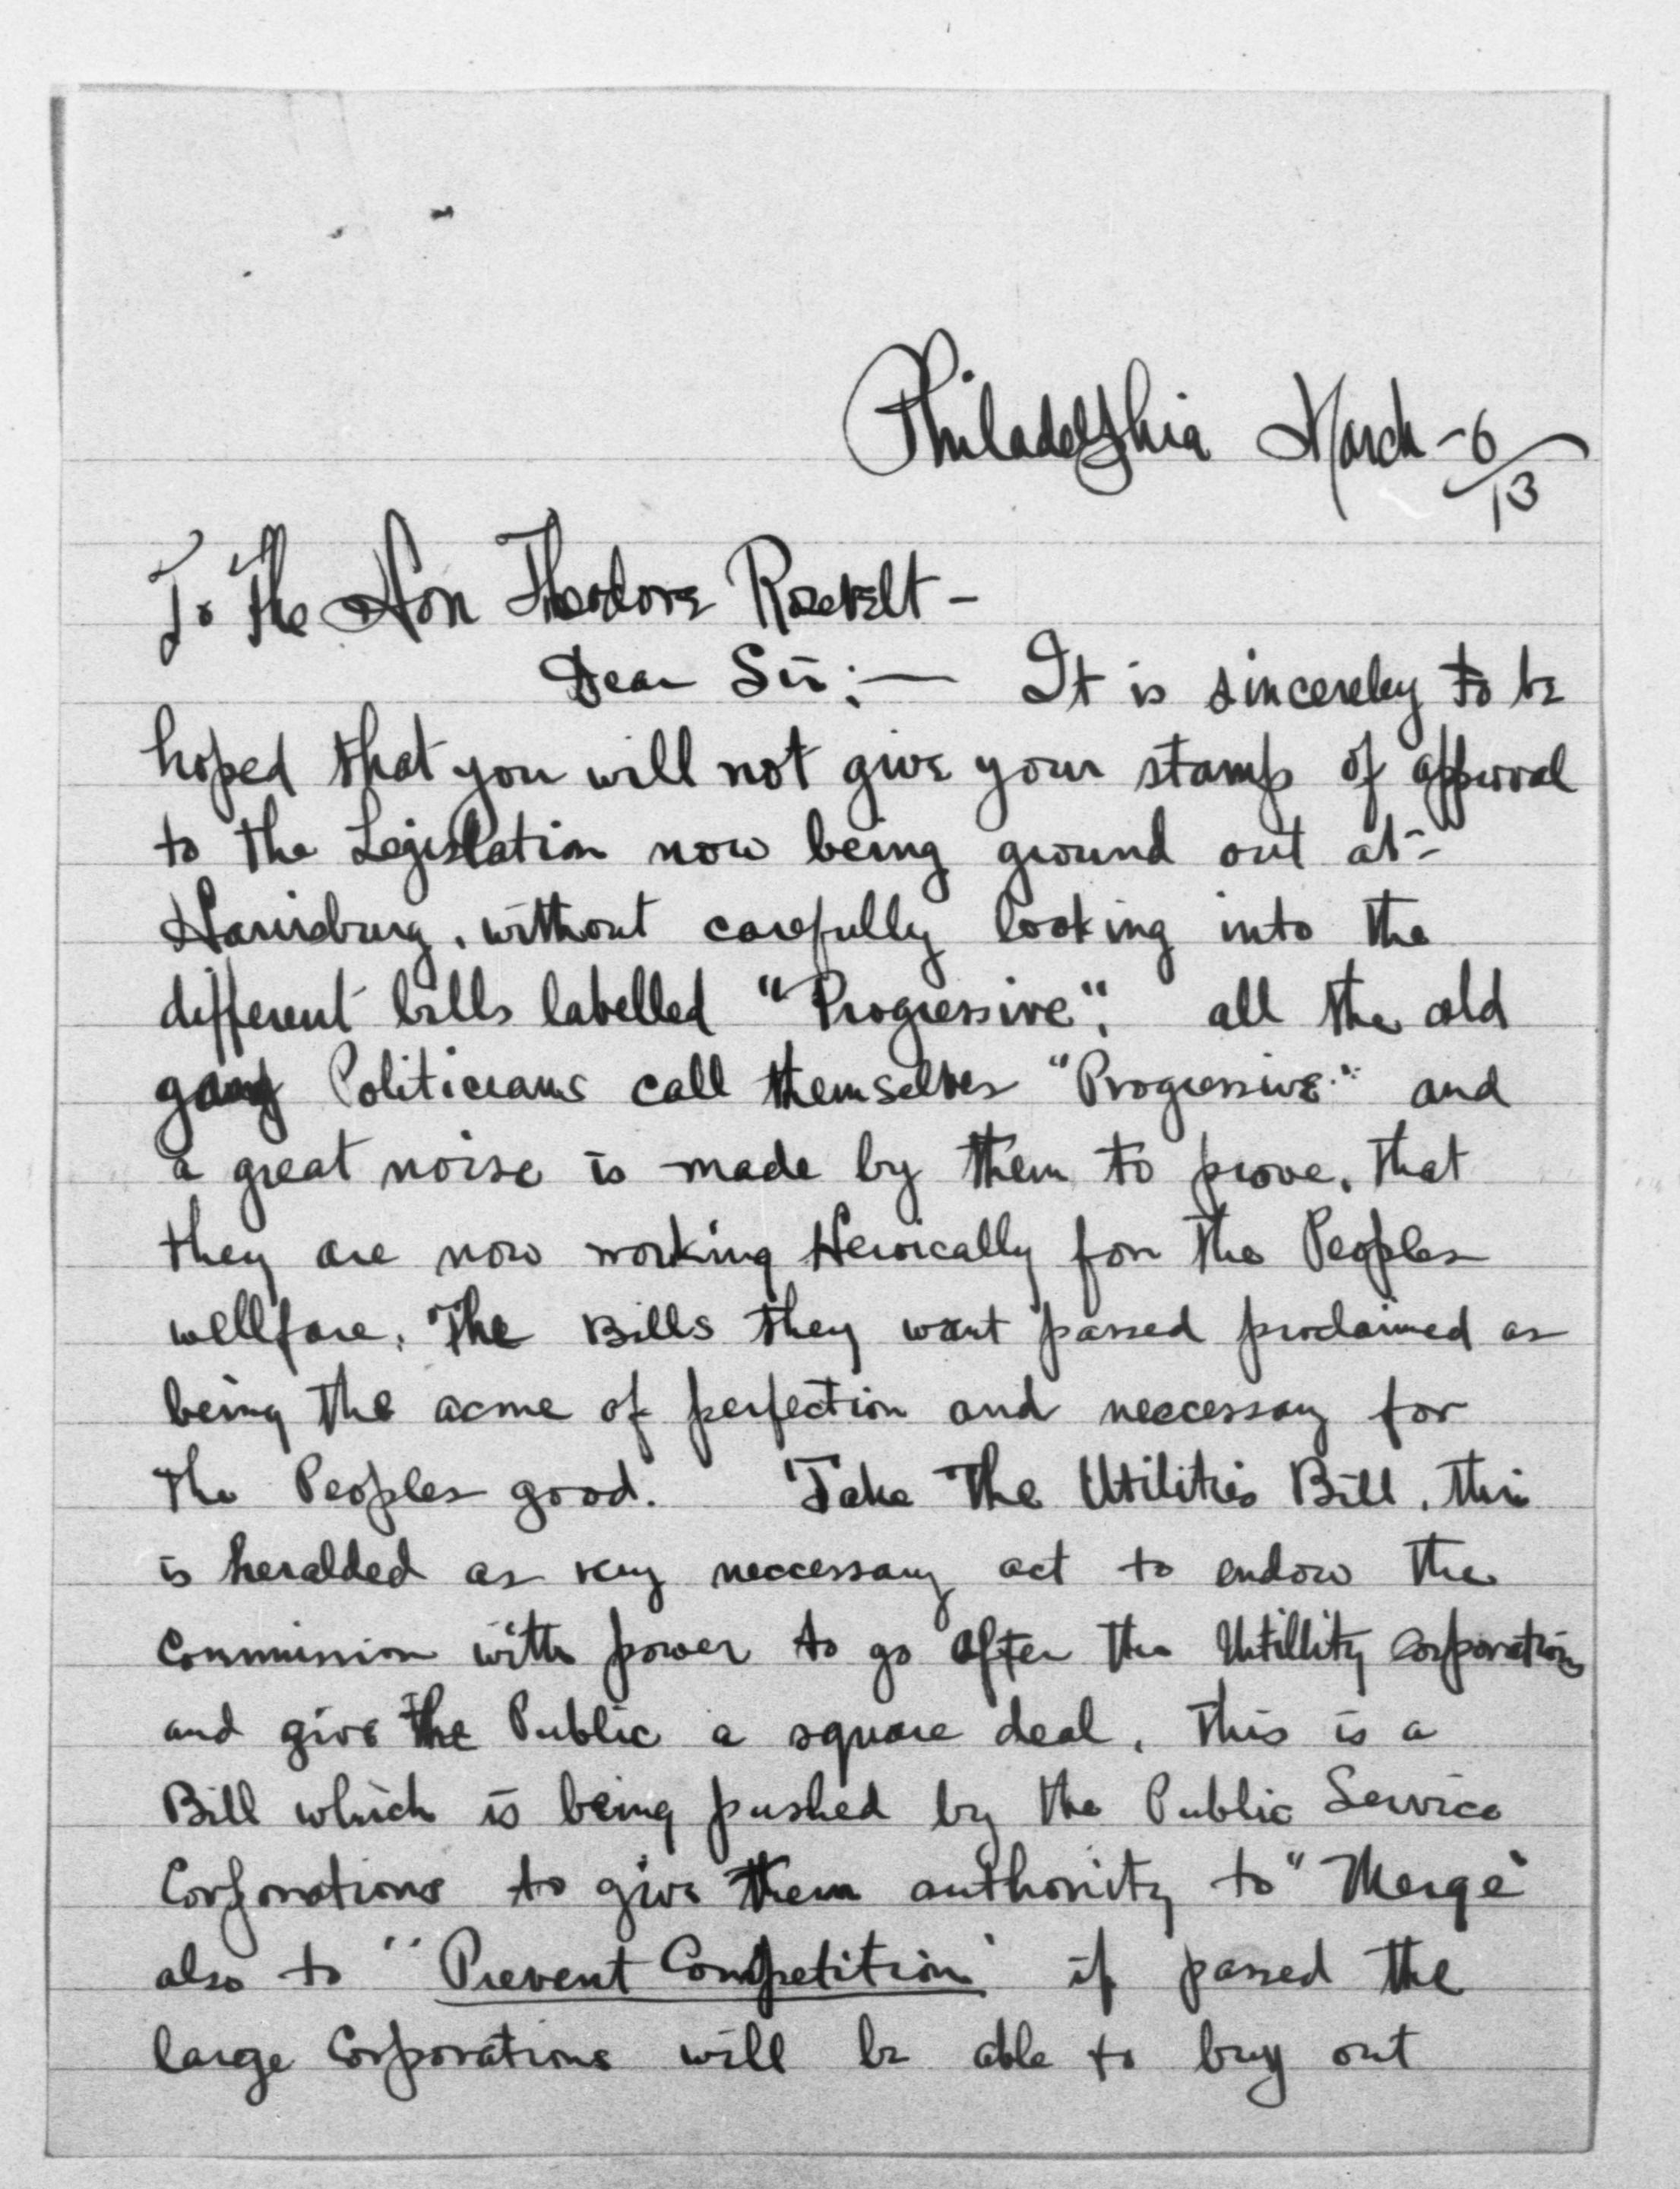 Philadelphia March - 6/13
To the Hon Theodore Roosevelt -
Dear Sir:— It is sincereley to be
hoped that you will not give your stamp of approval
to the Legislation now being ground out at -
Harrisburg, without carefully looking into the
different bills labelled "Progressive". all the old
gang Politicians call themselves "Progressive" and
a great noise is made by them to prove, that
they are now working Heroically for the Peoples
wellfare. The Bills they want passed proclaimed as
being the acme of perfection and neccessary for
the Peoples good. Take The Utilities Bill, this
is heralded as very neccessary act to endow the
Commission with power to go after the Utillity Corporations
and give the Public a square deal, this is a
Bill which is being pushed by the Public Service
Corporations to give them authority to "Merge"
also to "Prevent Competition" if passed the
large Corporations will be able to buy out